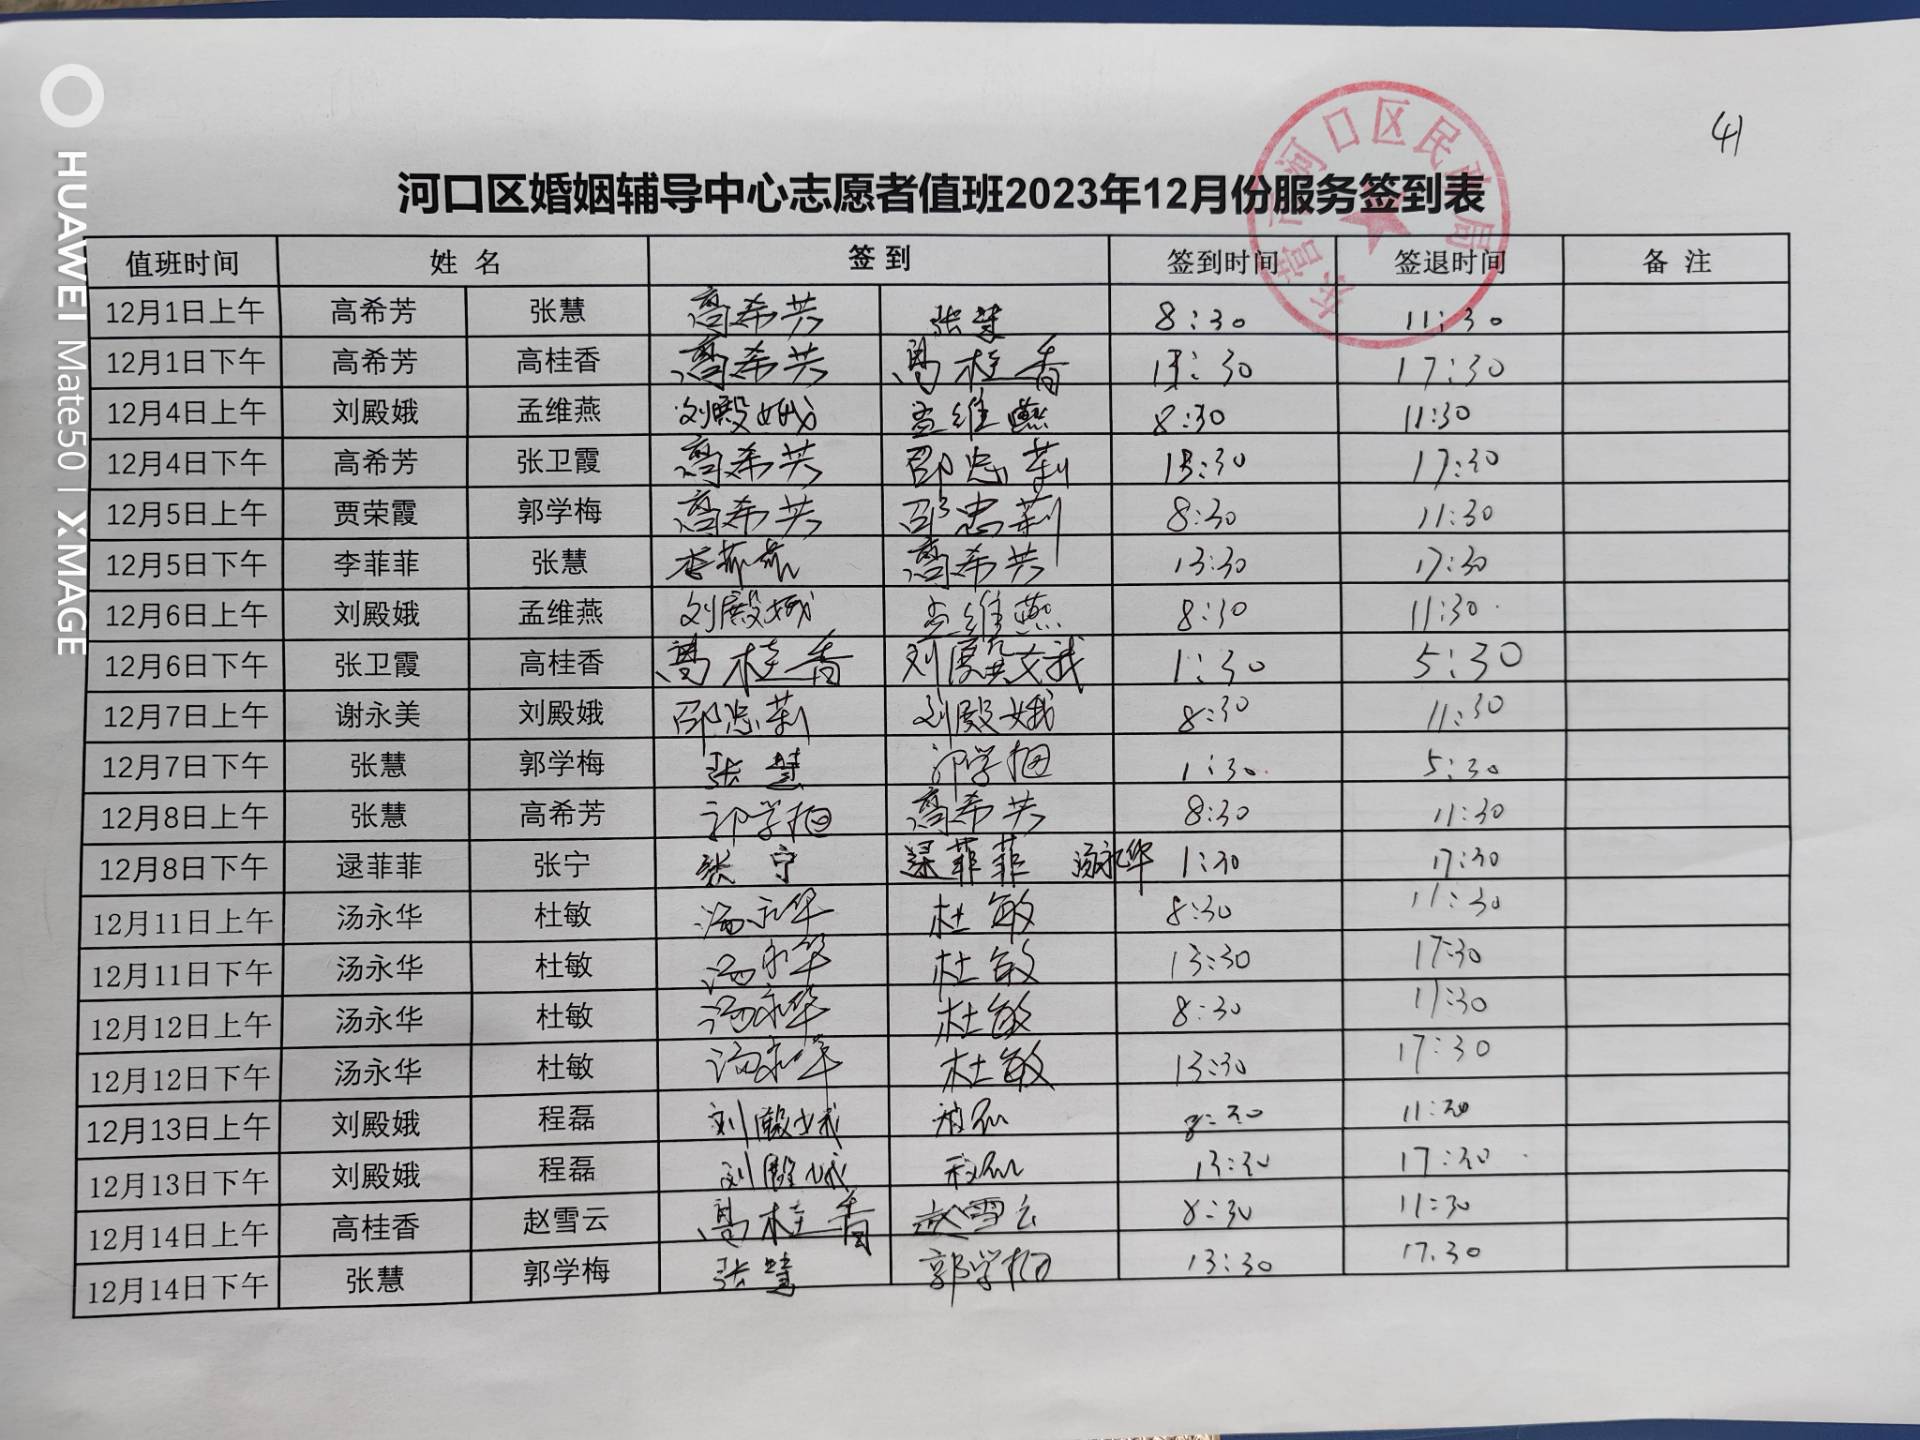 41
河口区婚姻辅导中心志愿者值班2023年12月份服务签到表
东营市河口区民政局
值班时间 姓 名 签 到 签到时间 签退时间 备 注
12月1日上午 高希芳 张慧 高希芳 张慧 8:30 11:30
12月1日下午 高希芳 高桂香 高希芳 高桂香 13:30 17:30
12月4日上午 刘殿娥 孟维燕 刘殿娥 孟维燕 8:30 11:30
12月4日下午 高希芳 张卫霞 高希芳 邵忠莉 13:30 17:30
12月5日上午 贾荣霞 郭学梅 高希芳 邵忠莉 8:30 11:30
12月5日下午 李菲菲 张慧 李菲菲 高希芳 13:30 17:30
12月6日上午 刘殿娥 孟维燕 刘殿娥 孟维燕 8:30 11:30
12月6日下午 张卫霞 高桂香 高桂香 刘殿娥 1:30 5:30
12月7日上午 谢永美 刘殿娥 邵忠莉 刘殿娥 8:30 11:30
12月7日下午 张慧 郭学梅 张慧 郭学梅 1:30 5:30
12月8日上午 张慧 高希芳 郭学梅 高希芳 8:30 11:30
12月8日下午 逯菲菲 张宁 张宁 逯菲菲 汤永华 1:30 17:30
12月11日上午 汤永华 杜敏 汤永华 杜敏 8:30 11:30
12月11日下午 汤永华 杜敏 汤永华 杜敏 13:30 17:30
12月12日上午 汤永华 杜敏 汤永华 杜敏 8:30 11:30
12月12日下午 汤永华 杜敏 汤永华 杜敏 13:30 17:30
12月13日上午 刘殿娥 程磊 刘殿娥 程磊 8:30 11:30
12月13日下午 刘殿娥 程磊 刘殿娥 程磊 13:30 17:30
12月14日上午 高桂香 赵雪云 高桂香 赵雪云 8:30 11:30
12月14日下午 张慧 郭学梅 张慧 郭学梅 13:30 17.30
HUAWEI Mate50 | XMAGE